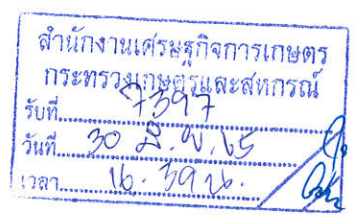 สำนักงานเศรษฐกิจการเกษตร
กระทรวงเกษตรและสหกรณ์
รับที่ 7397
วันที่ 30 มิ.ย. 65
เวลา 16.39 น.